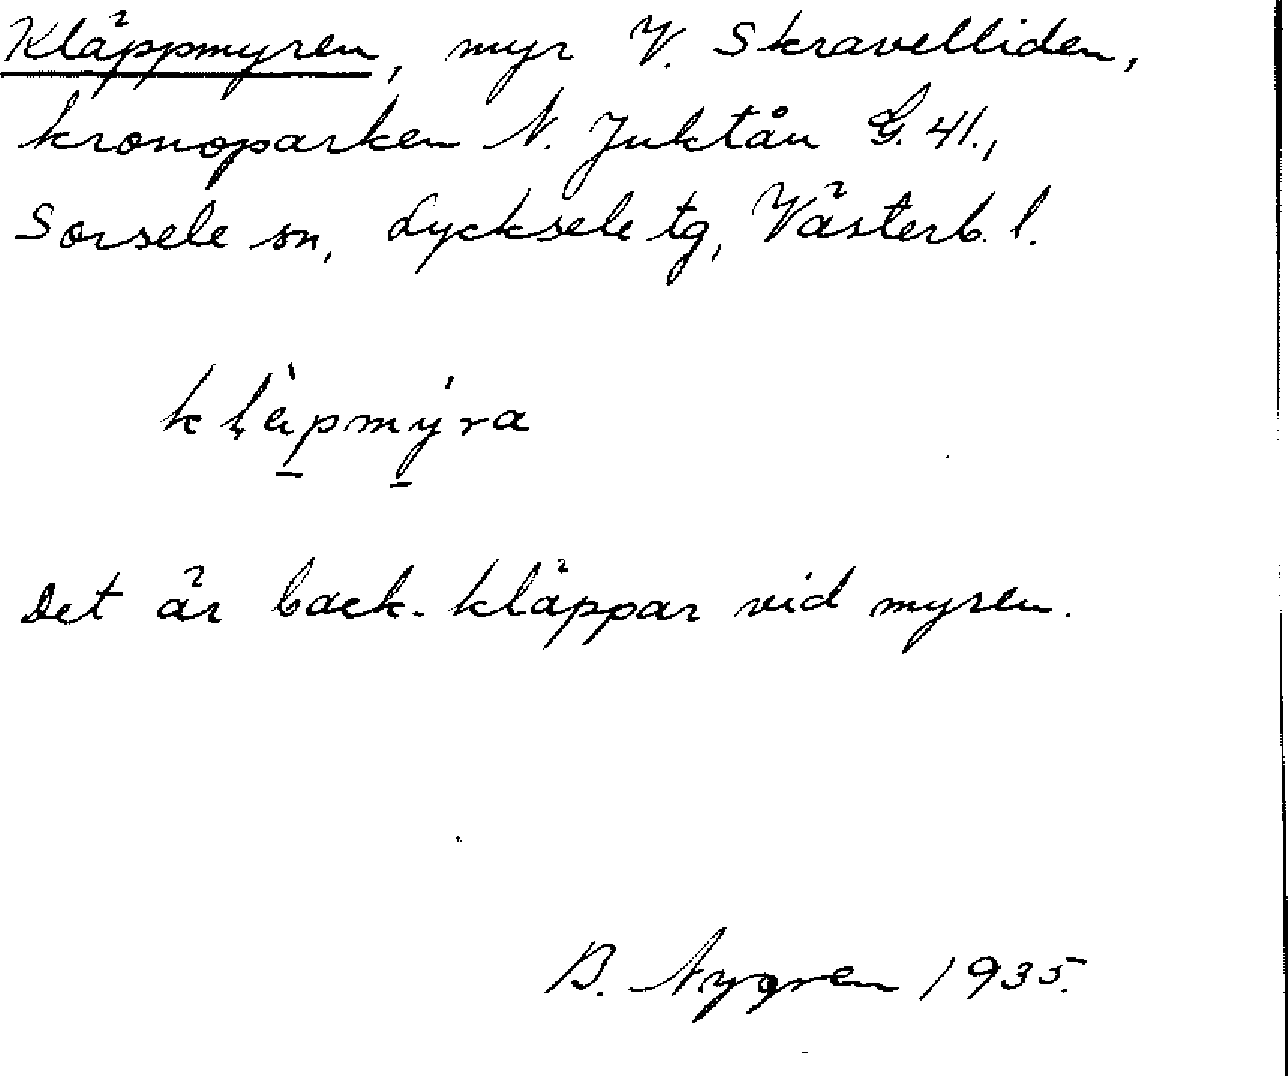 Kläppmyren, myr V. Skravelliden,
kronoparken N. Juktån G. 41.,
Sorsele sn, Lycksele tg, Västerb. l.
klä̀pmýra
Det är back-kläppar vid myren.
B. Nygren 1935.